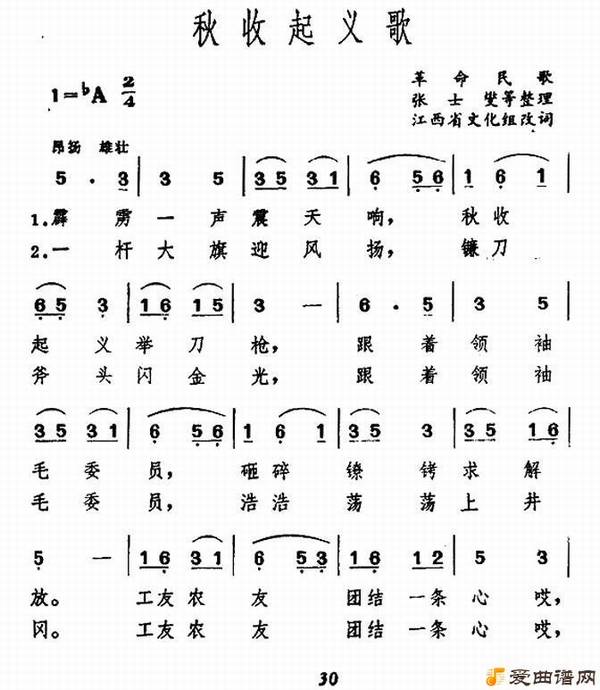 秋收起义歌
1=♭A 2/4
革命民歌
张士燮等整理
江西省文化组改词
昂扬 雄壮
5 . 3 | 3 5 | 35 31 | 6 56 | 1 6 1 |
1.霹雳一声震天响，秋收
2.一杆大旗迎风扬，镰刀
65 3 | 16 15 | 3 — | 6 . 5 | 3 5 |
起义举刀枪，跟着领袖
斧头闪金光，跟着领袖
35 31 | 6 56 | 1 6 1 | 35 3 | 35 16 |
毛委员，砸碎镣铐求解
毛委员，浩浩荡荡上井
5 — | 16 31 | 6 53 | 16 12 | 5 3 |
放。工友农友团结一条心哎，
冈。工友农友团结一条心哎，
30
爱曲谱网